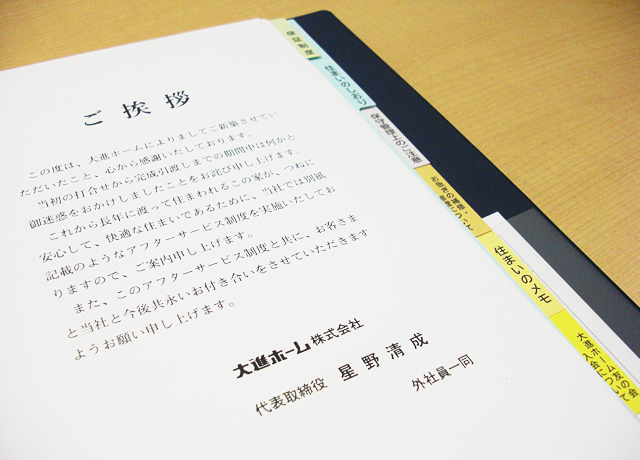 ご挨拶
この度は、大進ホームによりましてご新築させてい
ただいたこと、心から感謝いたしております。
当初の打合せから完成引渡しまでの期間中は何かと
御迷惑をおかけしましたことをお詫び申し上げます。
これから長年に渡って住まわれるこの家が、つねに
安心して、快適な住まいであるために、当社では別紙
記載のようなアフターサービス制度を実施いたしてお
りますので、ご案内申し上げます。
また、このアフターサービス制度と共に、お客さま
と当社と今後共永いお付き合いをさせていただきます
ようお願い申し上げます。
大進ホーム株式会社
代表取締役 星野清成
外社員一同
保証制度
住まいのしおり
保守管理上のご注意
お急ぎの補修・
修理について
住まいのメモ
大進ホーム友の会
入会について